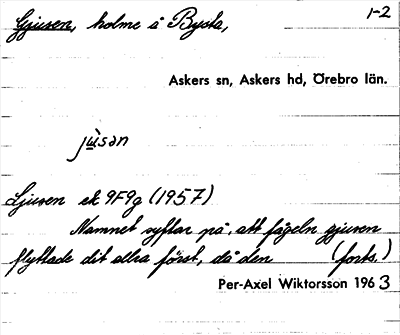 Gjusen, holme i Bysta, 1-2
Askers sn, Askers hd, Örebro län.
jùsən
Ljusen ek 9F9g (1957)
Namnet syftar på, att fågeln gjusen
flyttade dit allra först, då den (forts.)
Per-Axel Wiktorsson 1963